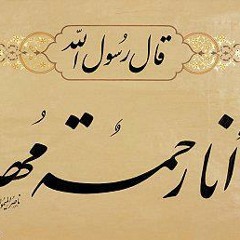 قال رسُول الله
أنا رحمُة مُهـ